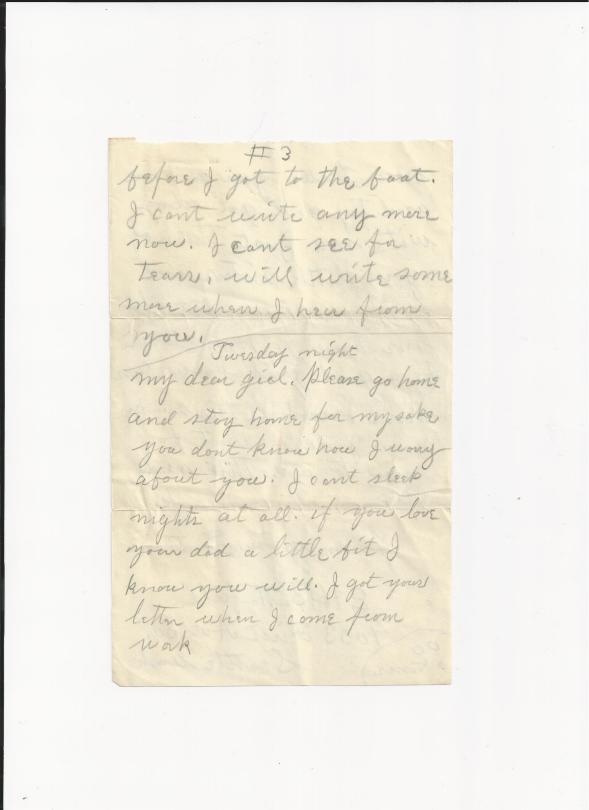 # 3
before I got to the boat.
I cant write any more
now. I cant see for
tears, will write some
more when I hear from
you.
Tuesday night
my dear girl. Please go home
and stay home for my sake
you dont know how I worry
about you. I cant sleep
nights at all. if you love
your dad a little bit I
know you will. I got your
letter when I come from
work